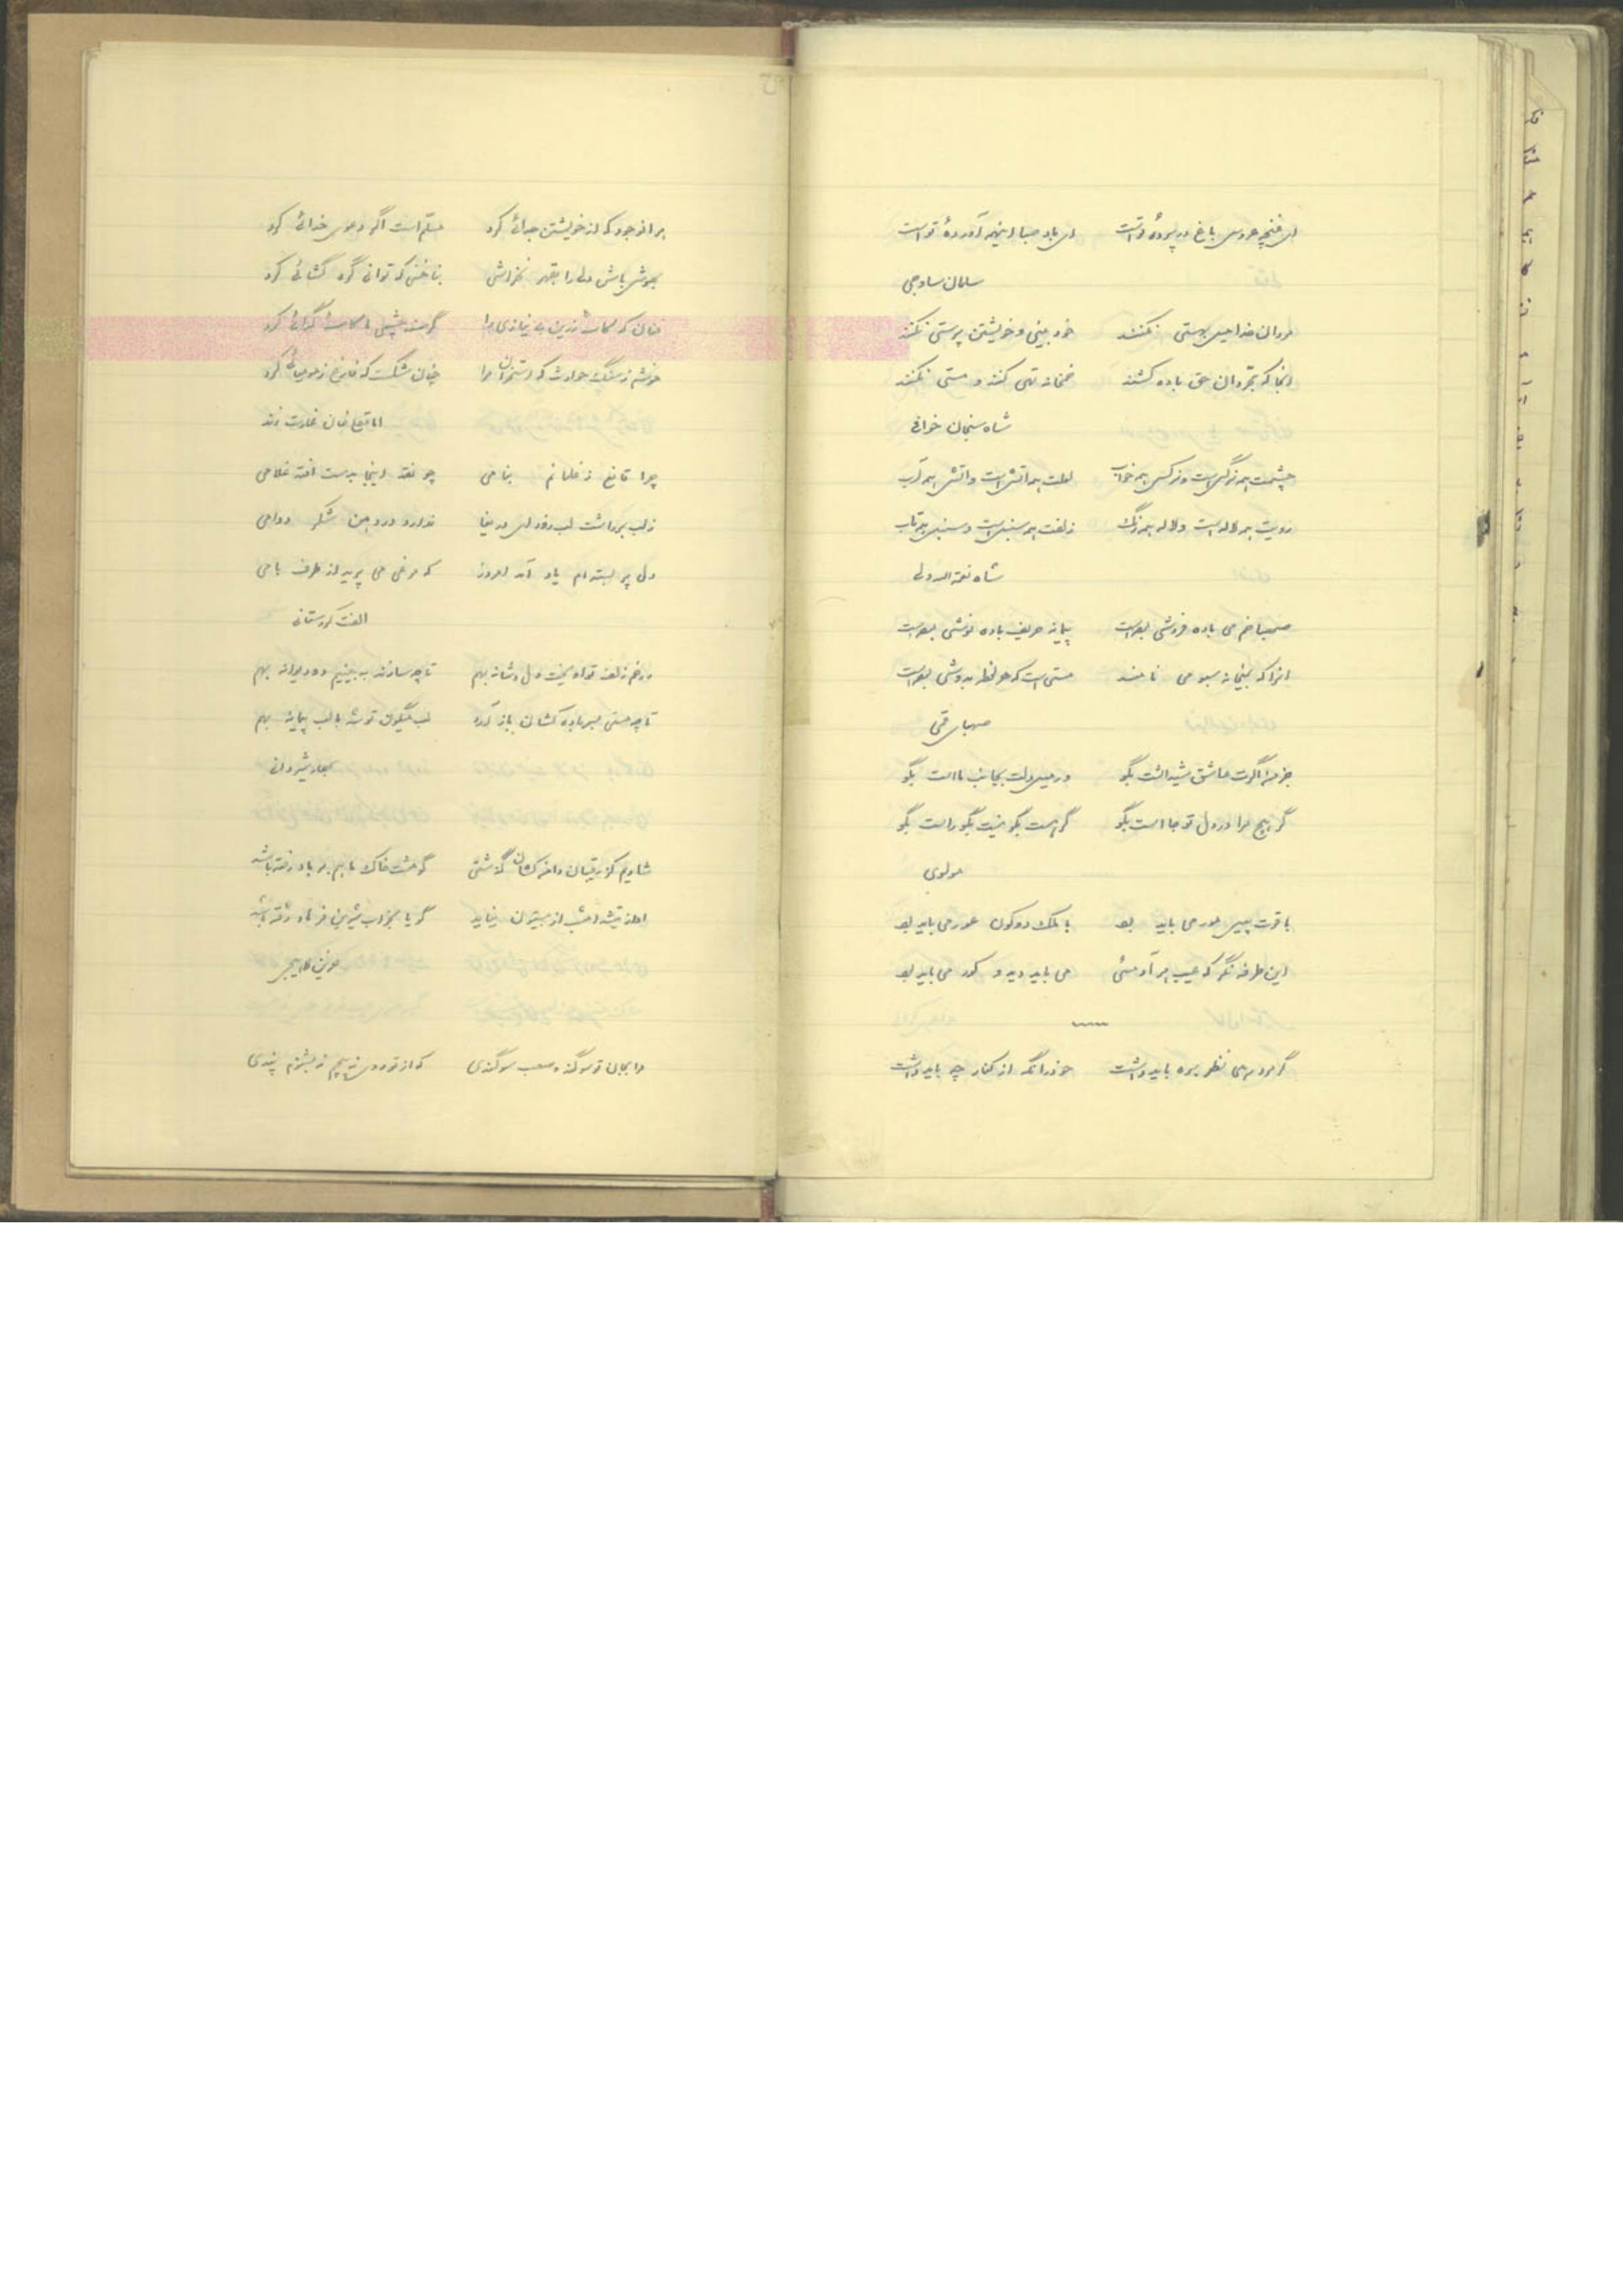 ای غنچه عروس باغ در پرده تست ای باد صبا اینهمه آورده تو است
سلمان ساوجی
مردان خدا میل بهستی نکنند خود بینی و خویشتن پرستی نکنند
انجا که مجردان حق باده کشند خمخانه تهی کنند و مستی نکنند
شاه سنجان خوافی
چشمت همه نرگس است و نرگس همه خواب لعلت همه آتش است و آتش همه آب
رویت همه لاله است و لاله همه رنگ زلفت همه سنبل است و سنبل همه تاب
شاه نعمة اله ولی
خم می باده فروشی بوده است پیمانه حریف باده نوشی بوده است
انرا که بمیخانه سبو می نامند مستی است که هر لحظه بدوشی بوده است
صهبای قمی
عاشق شیداست بگو ور میل دلت بجانب ما است بگو
گر هیچ مرا در دل تو جا است بگو گر هست بگو نیست بگو راست بگو
مولوی
با قوت پیل مور می باید بود با ملک دو کون عور می باید بود
این طرفه نگر که عیب هر آدمئی می باید دید و کور می باید بود
نظر بره باید داشت خود را نگه از کنار چه باید داشت
بر انوجود که از خویشتن جدائی کرد مسلم است اگر دعوی خدائی کرد
بهوش باش دلی را بقهر نخراشی بناخنی که توانی گره گشائی کرد
فغان که کاسه زرین بی نیازی را گرسنه چشمی ما کاسه گدائی کرد
خوشم ز سنگ حوادث که استخوان مرا چنان شکست که فارغ ز مومیائی کرد
چرا قانع ز غلمانم بنامی چو نقد اینجا بدست افتد غلامی
ز لب برداشت لب ندارد درد من شکر دوامی
دل پر بسته ام یاد آمد امروز که مرغی می پرید از طرف بامی
الفت کردستانی
در خم زلف تو آمیخت دل و شانه بهم تا چه سازند ببینیم دو دیوانه بهم
تا چه مستی بسر باده کشان باز آرد لب میگون تو شد با لب پیمانه بهم
شیروانی
شادم که از رقیبان دامن کشان گذشتی گو مشت خاک ما هم بر باد رفته باشد
اواز تیشه امشب از بیستون نیامد گویا بخواب شیرین فرهاد رفته باشد
حزین لاهیجی
مرا بجان تو سوگند و صعب سوگندی که از تو رو نه بپیچم نه بشنوم پندی